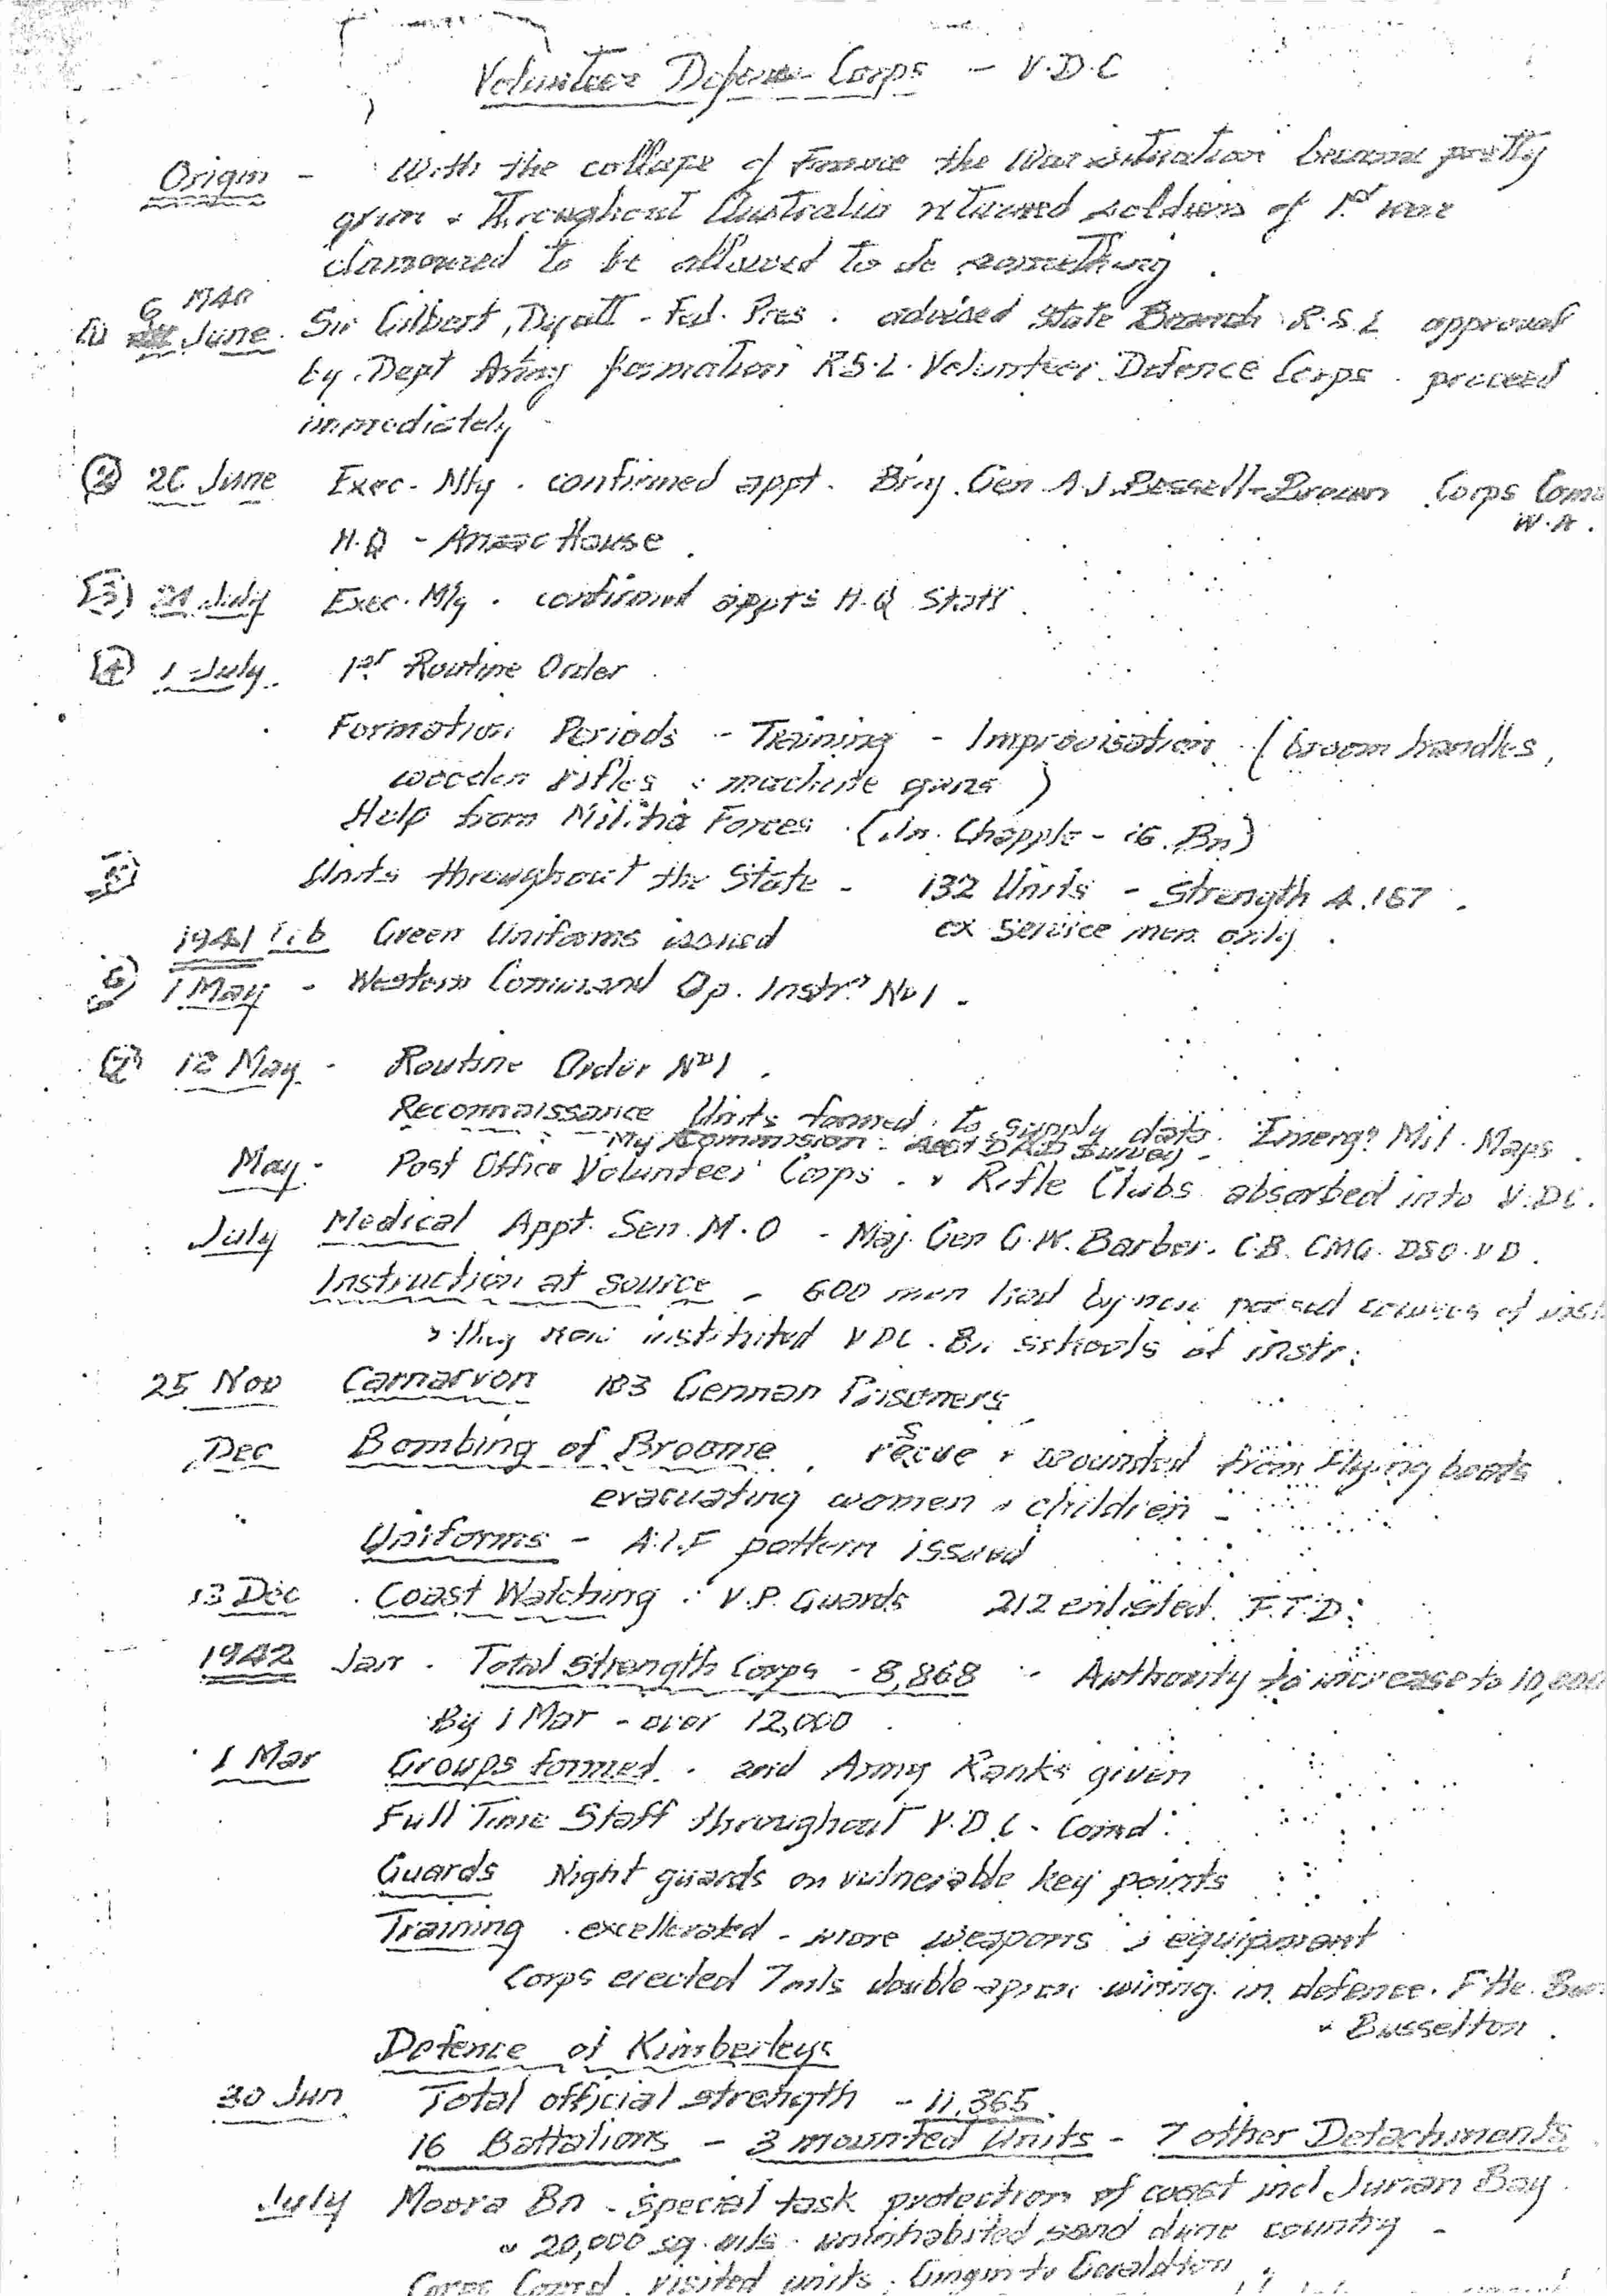 Volunteer Defence Corps - V.D.C
Origin - With the collapse of France the War situation became pretty
grim & Throughout Australia returned soldiers of 1st war
clamoured to be allowed to do something.
6 1940
(1) June. Sir Gilbert Dyett - Fed. Pres. advised State Branch R.S.L approval
by Dept Army formation R.S.L. Volunteer Defence Corps. proceed
immediately
(2) 26 June Exec. Mtg. confirmed appt. Brig. Gen A.J. Bessell-Brown Corps
W.A.
H.Q - Anzac House.
(3) July Exec. Mtg. confirmed appts H.Q Staff.
(4) 1 July. 1st Routine Order
Formation Periods - Training - Improvisation (broom handles,
wooden rifles & machine guns)
Help from Militia Forces. ( Chapple - 16. Bn)
(5) Units throughout the State - 132 Units - Strength 4.167.
ex service men only.
1941 Feb Green Uniforms issued
(6) 1 May - Western Command Op. Instrn No 1.
(7) 12 May - Routine Order No 1.
Reconnaissance Units formed to supply data. Emergn Mil. Maps.
My Commission - Survey -
May. Post Office Volunteer Corps. & Rifle Clubs absorbed into V.D.C.
July Medical Appt. Sen. M.O - Maj. Gen G.W. Barber. C.B. CMG. DSO. VD.
Instruction at source - 600 men had by now passed courses of
& they now instituted VDC. Bn schools of instr:
25 Nov Carnarvon 183 German Prisoners
Dec Bombing of Broome. recue & wounded from Flying boats.
s
evacuating women & children -
" Uniforms - A.I.F pattern issued
13 Dec. Coast Watching & V.P. Guards 212 enlisted F.T.D.
1942 Jan. Total strength Corps - 8,868 - Authority to increase to 10,000
By 1 Mar - over 12,000.
1 Mar Groups formed. and Army Ranks given
Full Time Staff throughout V.D.C. Comd.
Guards Night guards on vulnerable key points
Training. excellerated - more weapons & equipment
Corps erected 7 mls double apron wiring in defence.
& Busselton.
Defence of Kimberleys
30 Jun. Total official strength - 11,365.
16 Battalions - 3 mounted Units - 7 other Detachments
July Moora Bn - Special task protection of coast incl Jurian Bay.
20,000 sq. mls. uninhabited sand dune country -
Corps Comd. visited units. Gingin to Geraldton